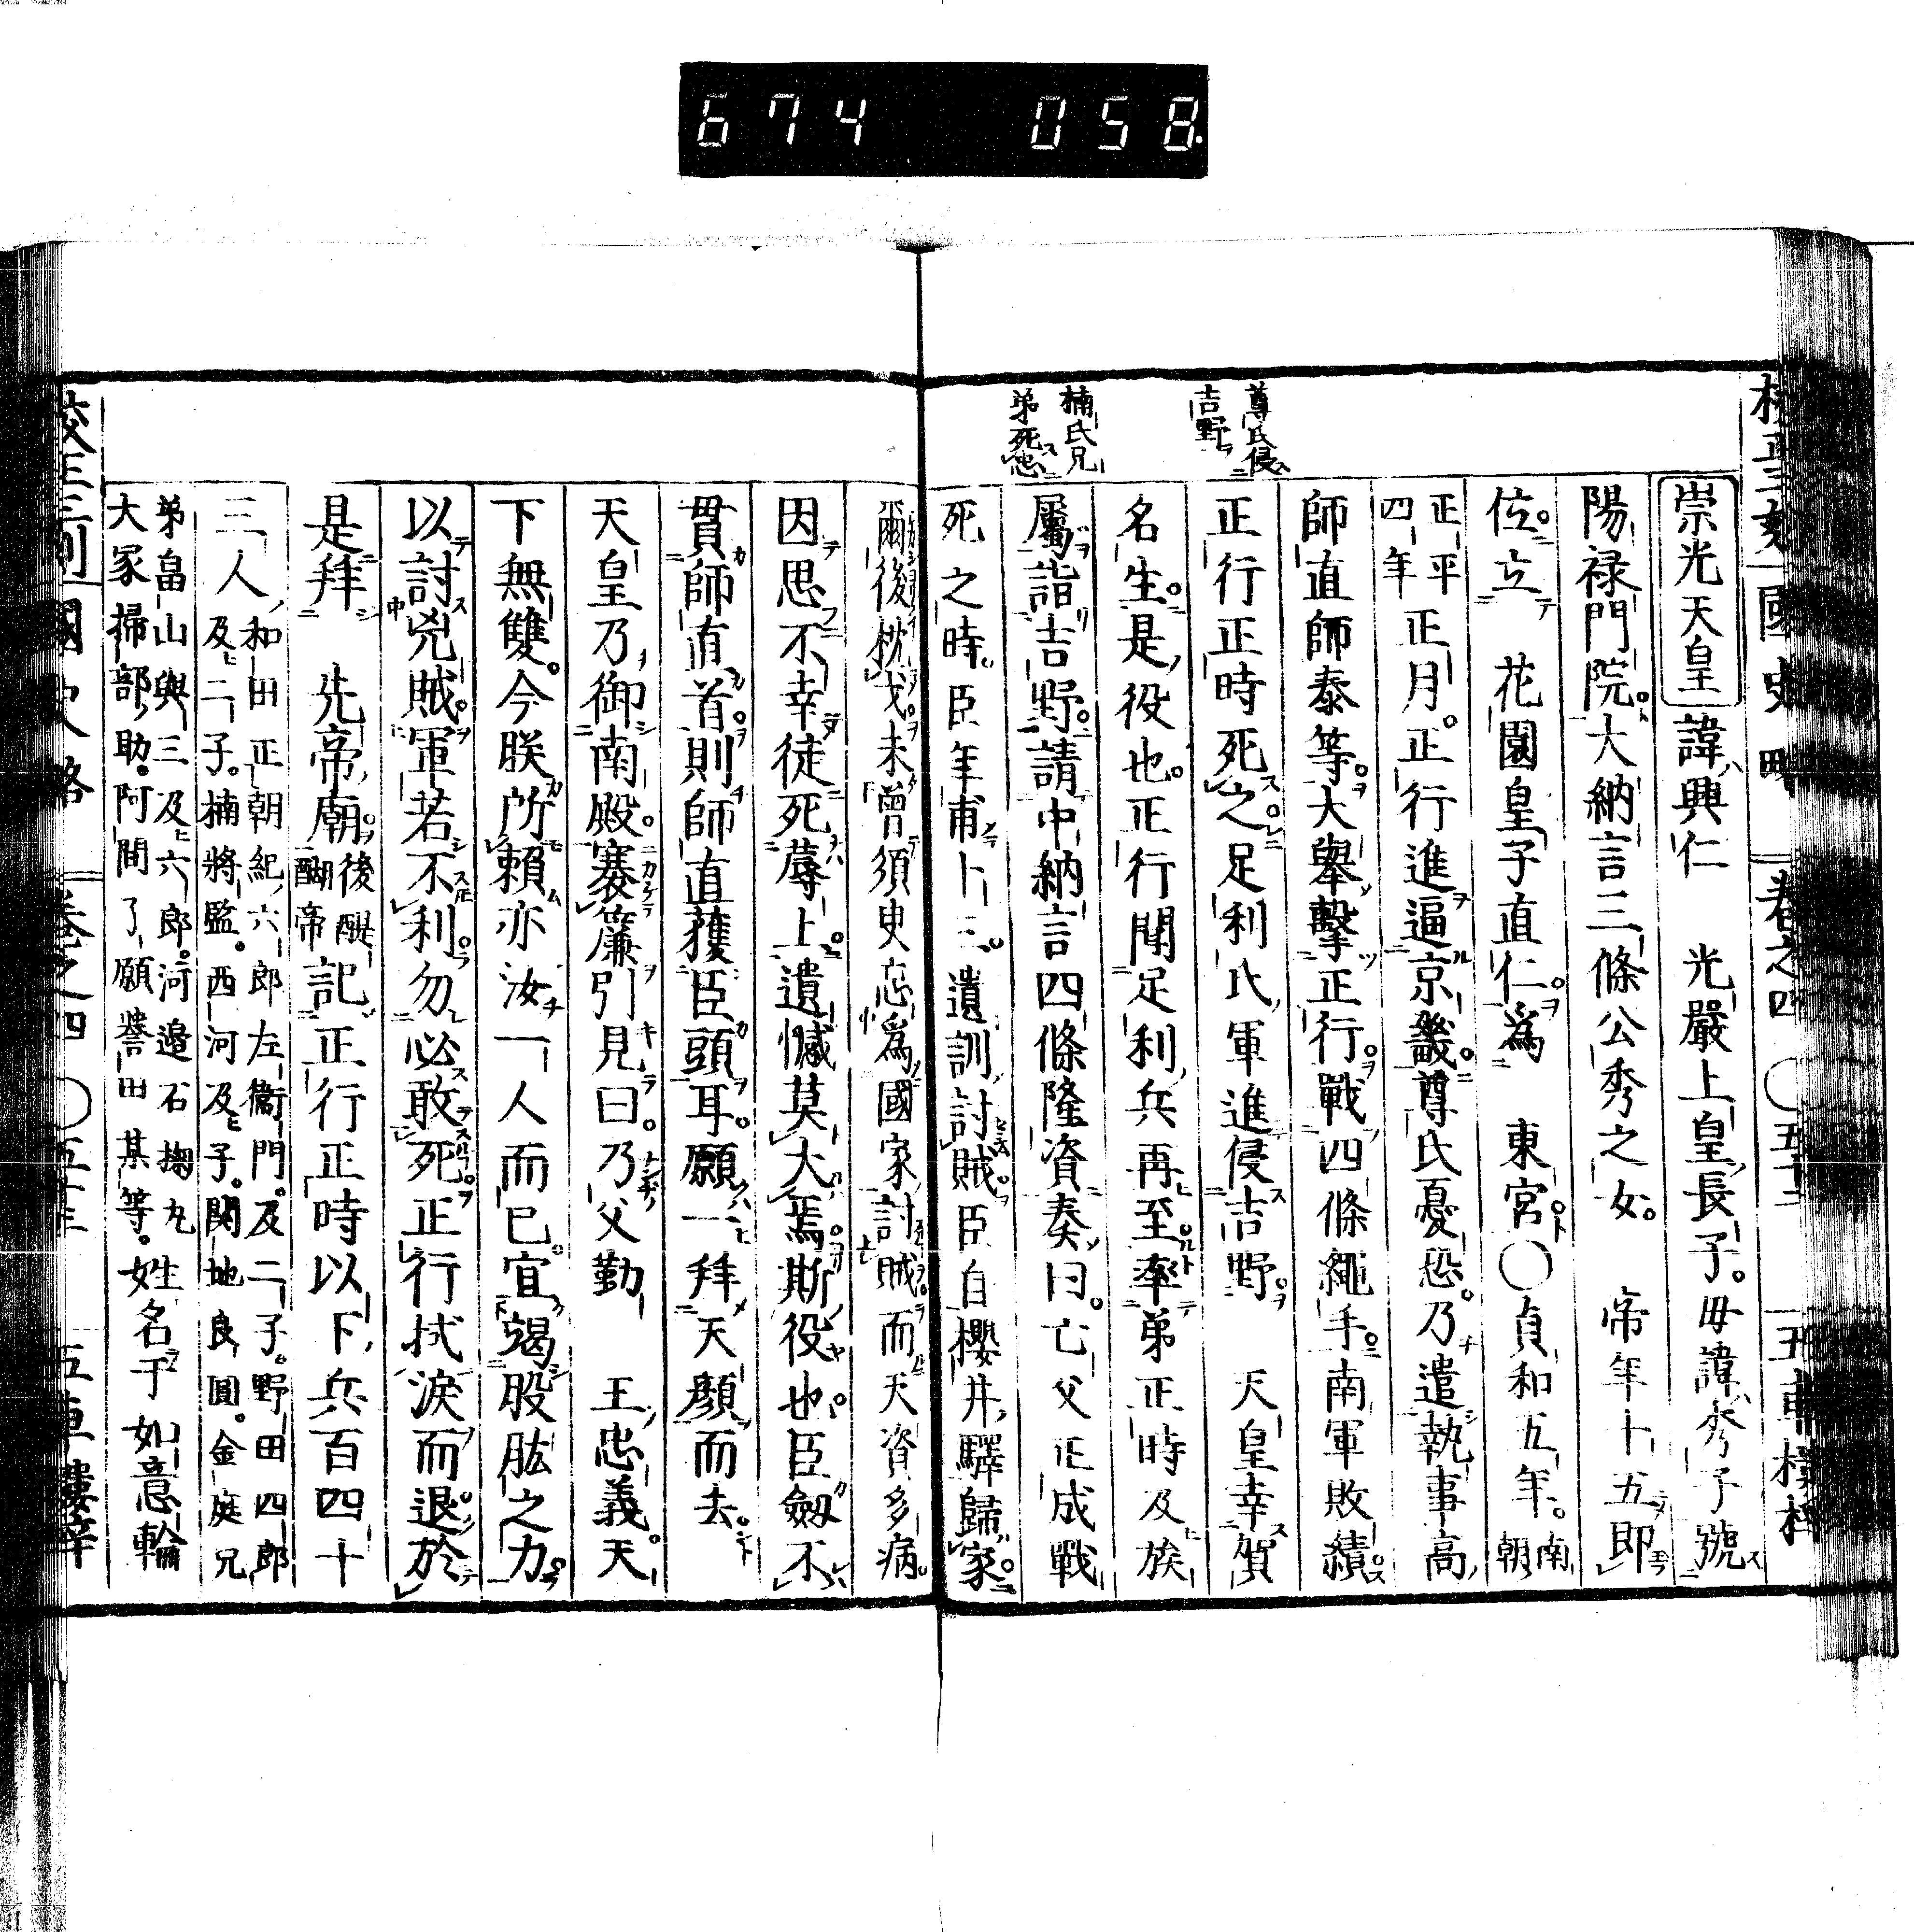 674 058
尊氏侵
吉野
楠氏兄
弟死忠
國史略 卷之四 ○五十二
崇光天皇 諱興仁 光嚴上皇長子。母諱秀子號
陽禄門院。大納言三條公秀之女。 帝年十五即
位。立 花園皇子直仁。爲 東宮。○貞和五年。南朝
正平四年 正月。正行進逼京畿。尊氏憂恐。乃遣執事高
師直師泰等。大舉擊正行。戰四條繩手。南軍敗績。
正行正時死之。足利氏軍進侵吉野。 天皇幸賀
名生。是役也。正行聞足利兵再至。率弟正時及族
屬。詣吉野。請中納言四條隆資奏曰。亡父正成戰
死之時。臣年甫十三。遺訓討賊。臣自櫻井驛歸家。
爾後枕戈。未曾須臾忘爲國家討賊。而天資多病。
因思不幸徒死。辱上遺憾莫大焉。斯役也。臣劔不
貫師直首。則師直獲臣頭耳。願一拜天顏而去。
天皇乃御南殿。褰簾引見曰。乃父勤 王忠義。天
下無雙。今朕所賴亦汝一人而已。宜竭股肱之力。
以討兇賊。軍若不利。勿必敢死。正行拭淚而退。於
是拜 先帝廟。後醍醐帝 記正行正時以下兵百四十
三人 和田正朝紀六郎左衞門。及二子。野田四郎
及二子。楠將監。西河及子。関地良圓。金庭兄
弟畠山與三及六郎。河邉石掬丸
大冢掃部助。阿間了願譽田某等。 姓名于如意輪
國史略 卷之四 ○五十三 五車樓梓